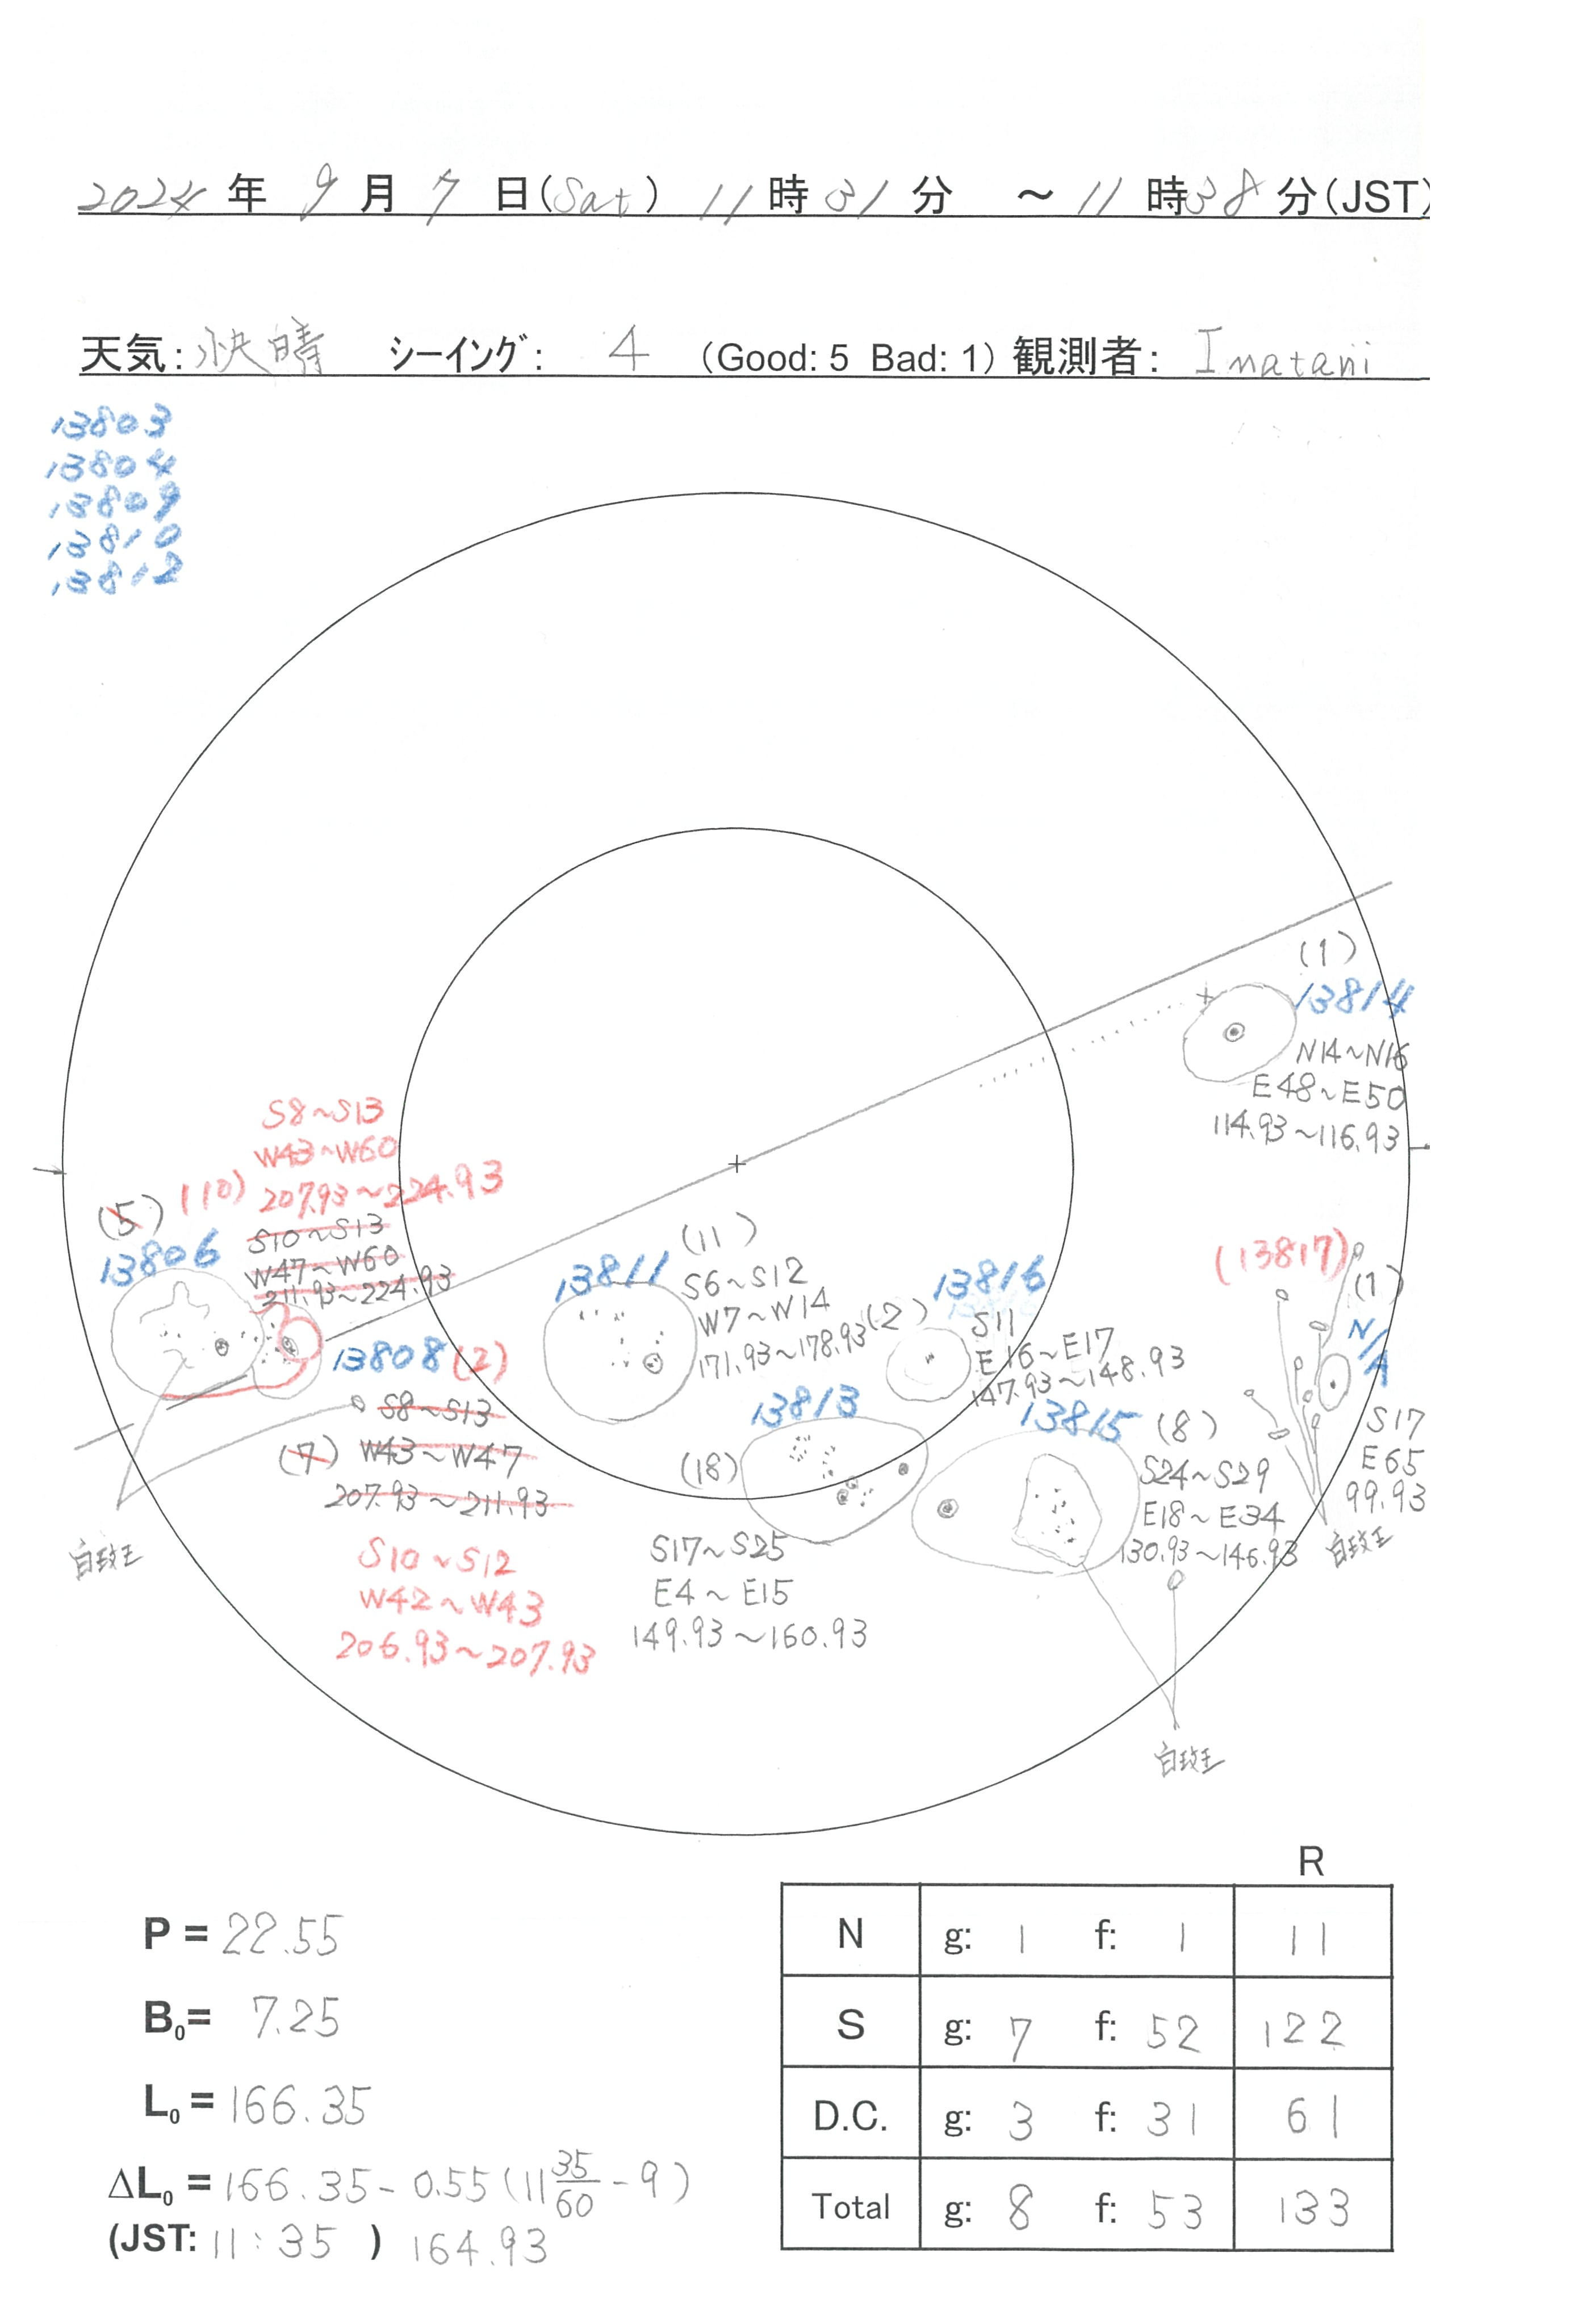 2024年 9月 7日(Sat) 11時31分 ～11時38分(JST)
天気: 快晴 シーイング: 4 (Good: 5 Bad: 1) 観測者: Imatani
13803
13804
13809
13810
13812
(1)
13814
N14~N16
E48~E50
114.93~116.93
S8~S13
W43~W60
207.93~224.93
(5) (10)
13806
S10~S13
W47~W60
211.93~224.93
13808 (2)
S8~S13
(7) W43~W47
207.93~211.93
S10~S12
W42~W43
206.93~207.93
白斑
(11)
13811
S6~S12
W7~W14
171.93~178.93
13816
(2) S11
E16~E17
147.93~148.93
13813
(18)
S17~S25
E4~E15
149.93~160.93
13815 (8)
S24~S29
E18~E34
130.93~146.93
白斑
(13817)
(1)
N/A
S17
E65
99.93
白斑
P = 22.55
B₀= 7.25
L₀ = 166.35
ΔL₀ = 166.35 - 0.55 (11 35/60 - 9)
(JST: 11:35 ) 164.93
R
N g: 1 f: 1 11
S g: 7 f: 52 122
D.C. g: 3 f: 31 61
Total g: 8 f: 53 133